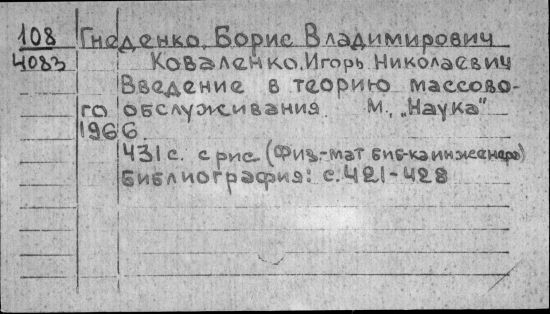 108 Гнеденко, Борис Владимирович
4083 Коваленко, Игорь Николаевич
Введение в теорию массово-
го обслуживания М., „Наука"
1966.
431 с. с рис. (Физ.-мат биб-ка инженера)
Библиография: с. 421-428